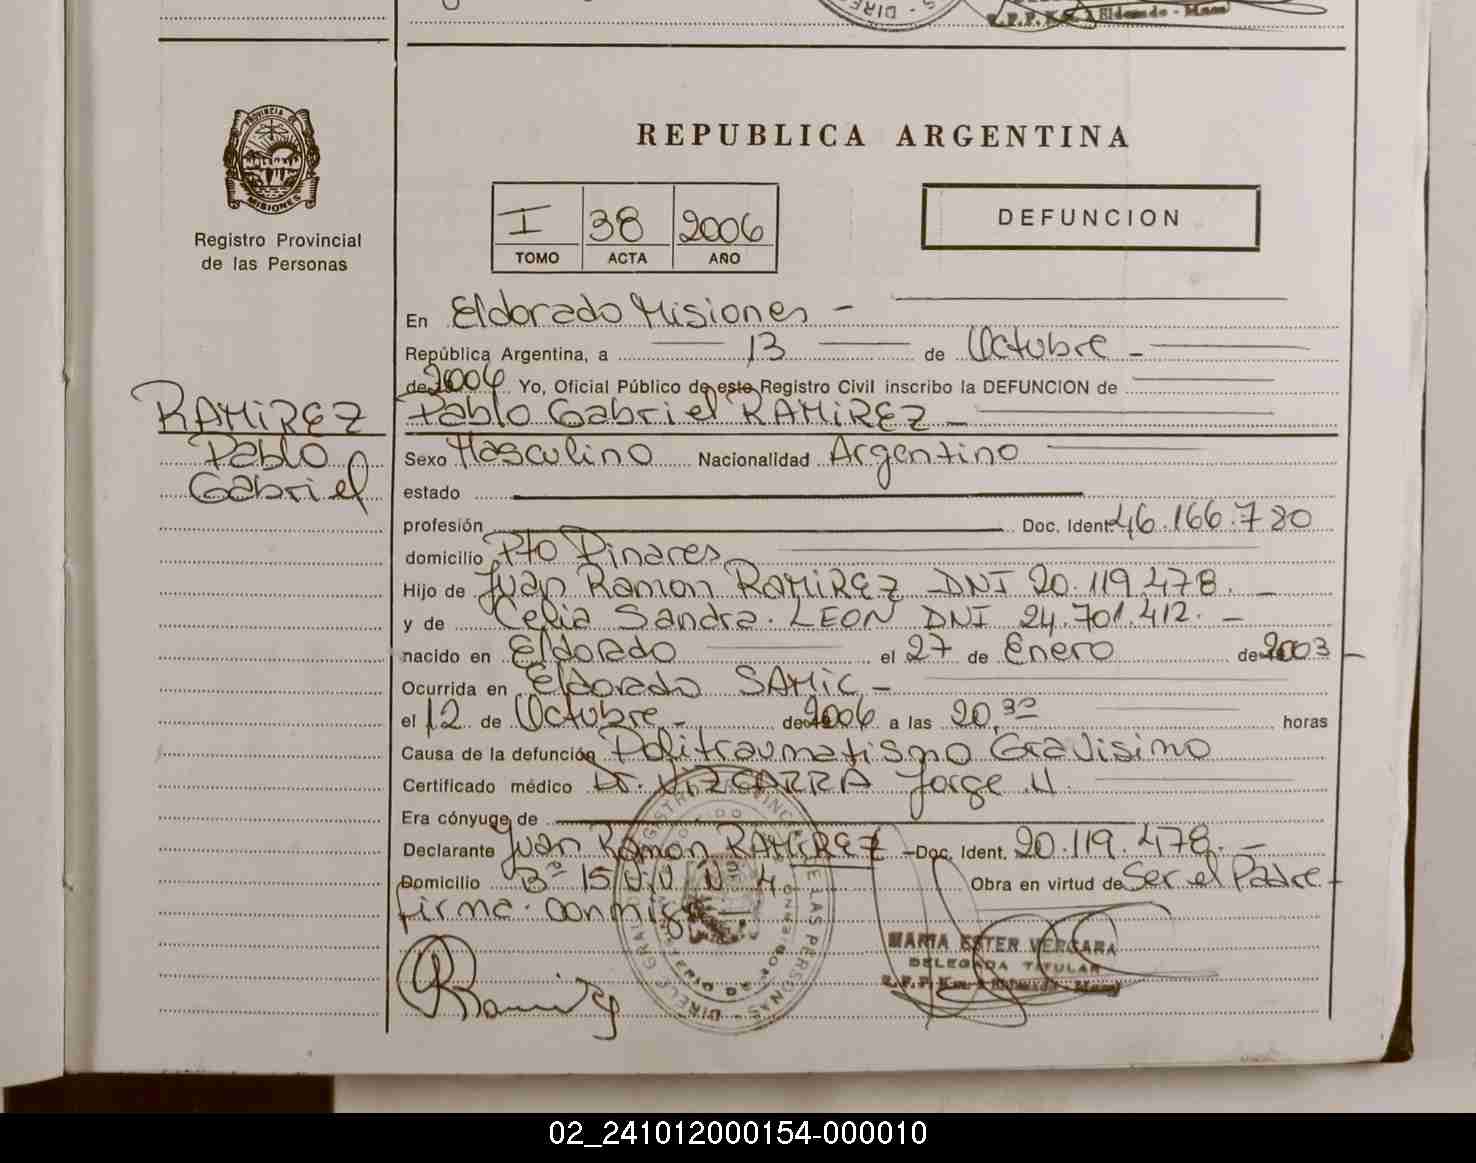 REPUBLICA ARGENTINA
PROVINCIA DE
MISIONES
Registro Provincial
de las Personas
I 38 2006
TOMO ACTA AÑO
DEFUNCION
En Eldorado Misiones -
República Argentina, a 13 de Octubre -
de 2006 Yo, Oficial Público de este Registro Civil inscribo la DEFUNCION de
RAMIREZ
Pablo
Gabriel
Pablo Gabriel RAMIREZ -
Sexo Masculino Nacionalidad Argentino
estado
profesión Doc. Ident. 46.166.780
domicilio Pto Pinares
Hijo de Juan Ramon RAMIREZ - DNI 20.119.478. -
y de Celia Sandra. LEON DNI 24.701.412. -
nacido en Eldorado el 27 de Enero de 2003 -
Ocurrida en Eldorado SAMIC -
el 12 de Octubre - de 2006 a las 20,30 horas
Causa de la defunción Politraumatismo Gravisimo
Certificado médico Dr. VIZCARRA Jorge
Era cónyuge de
Declarante Juan Ramon RAMIREZ - Doc. Ident. 20.119.478. -
Domicilio Bº 15 Viv Nº 4 Obra en virtud de Ser el Padre -
firma conmigo -
MARIA ESTER VERGARA
DELEGADA TITULAR
02_241012000154-000010